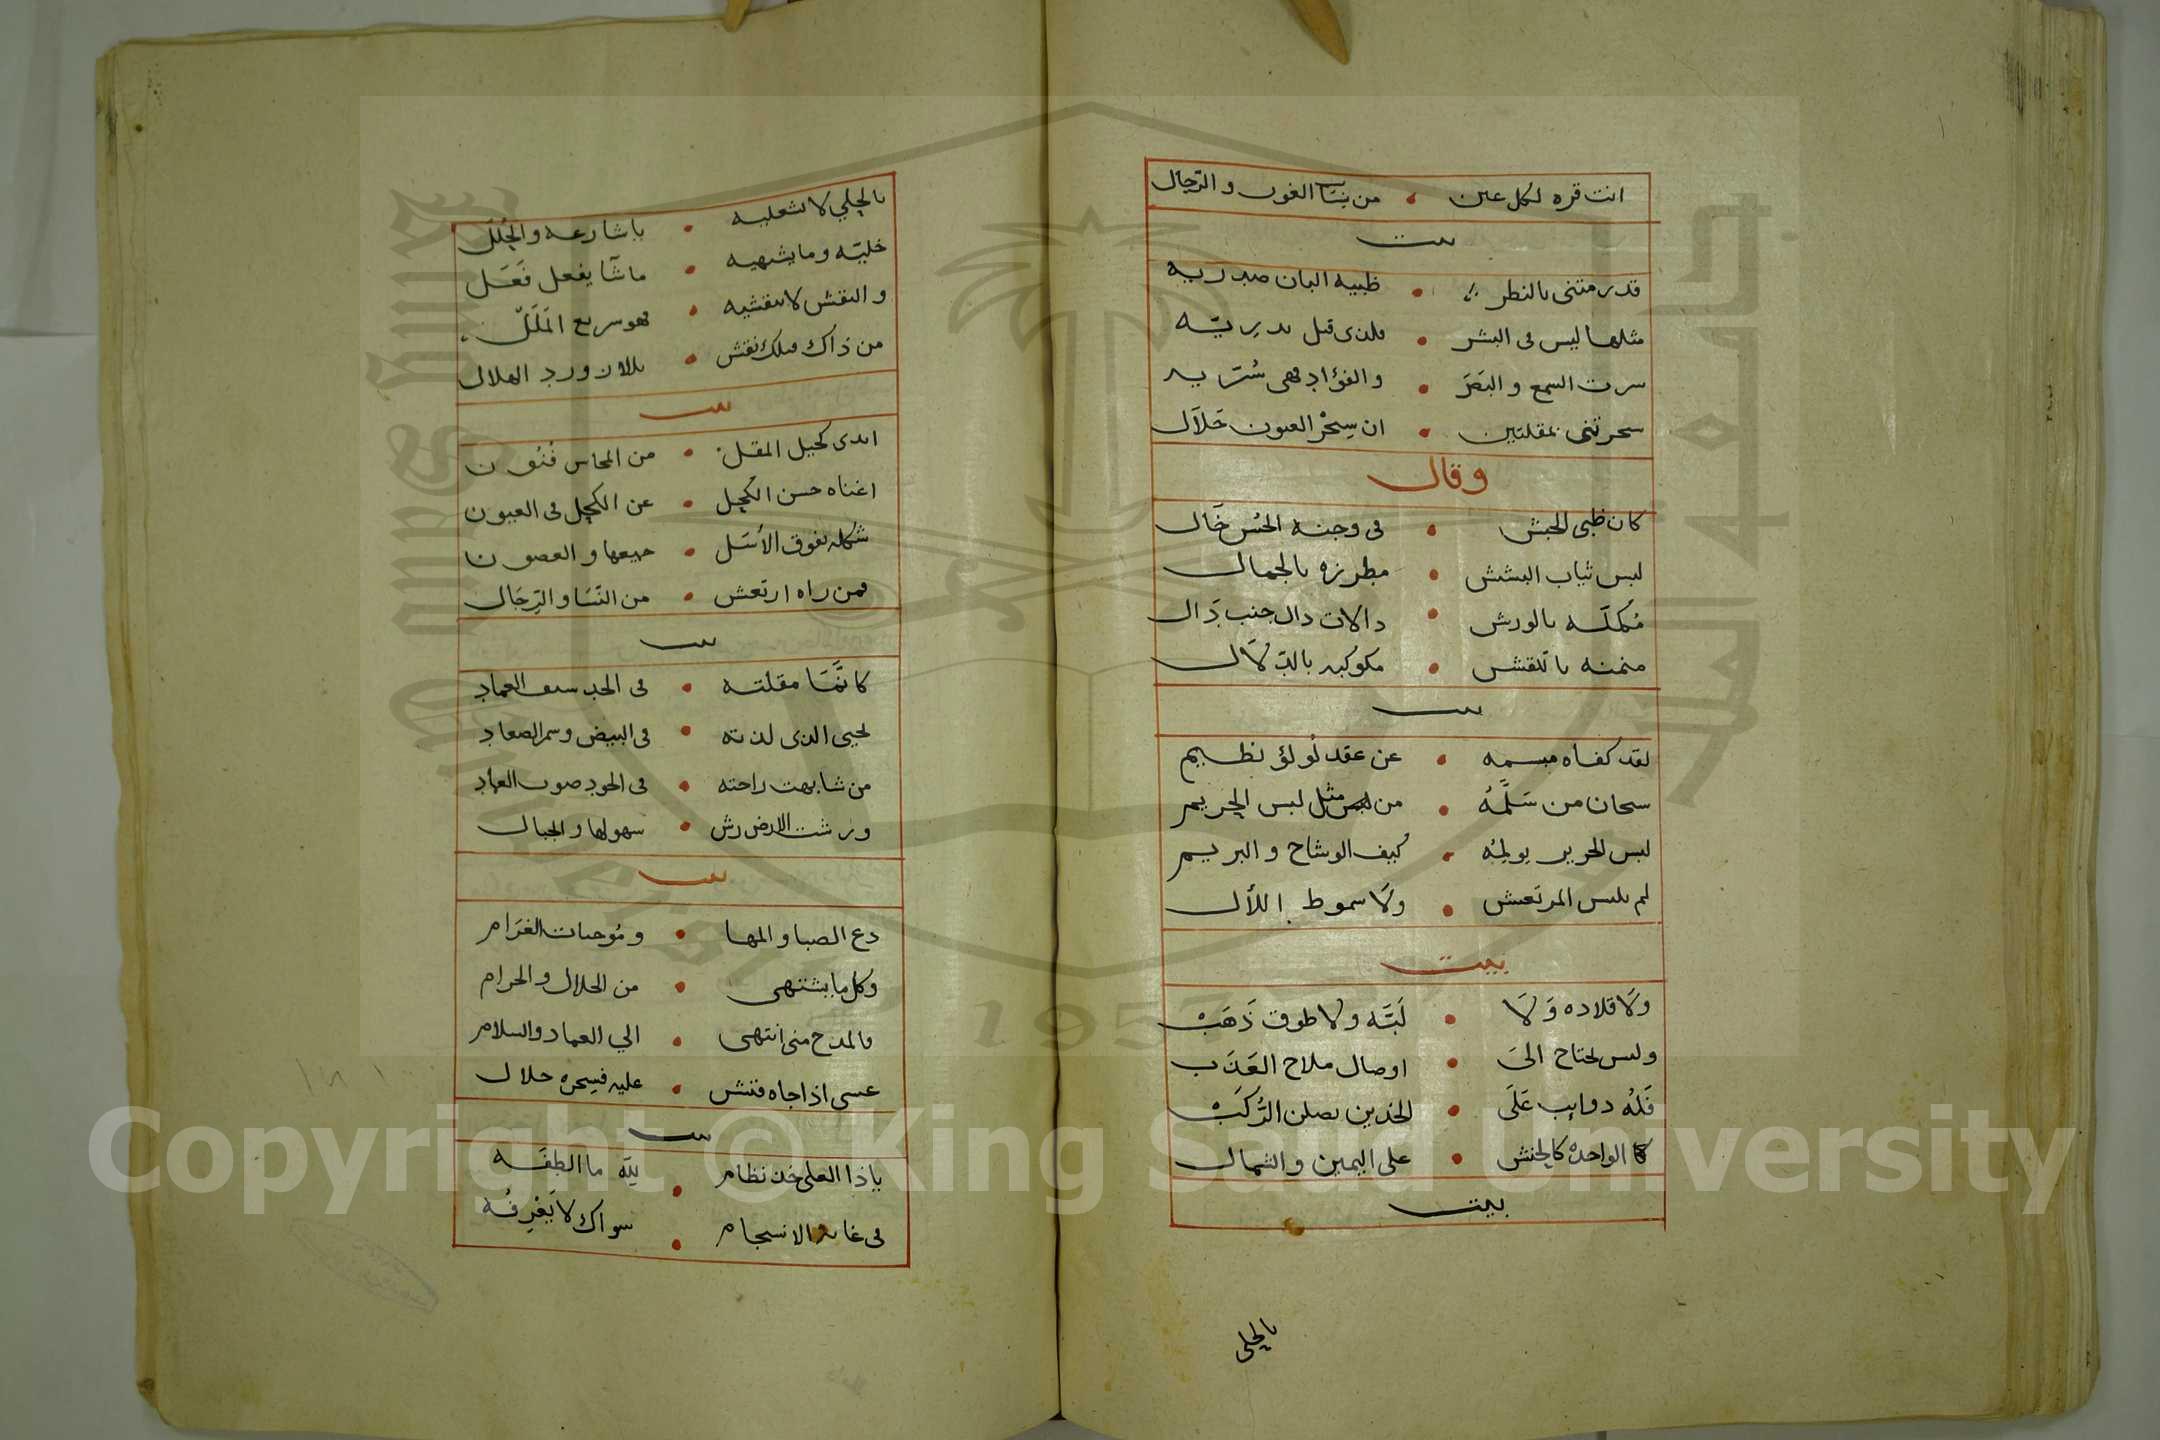 انت قره لكل عين • من نسا الغون والرجال
بيت
قد رمتني بالنظر • ظبيه البان صدريه
مثلها ليس في البشر • فلذى قبل بدريه
سرت السمع والبصر • والفؤاد فهي سريه
سحرتني بمقلتين • ان سحر العيون حلال
وقال
كان ظبي الحبش • في وجنه الحسن خال
لبس ثياب البشش • مطرزه بالجمال
مكمله بالورش • دالات دال جنب دال
منمنه بالنقش • مكوكبه بالدلال
بيت
لقد كفاه مبسمه • عن عقد لولو نظيم
سبحان من سلمه • من مثل لبس البريم
لبس الحرير يولمه • كيف الوشاح والبريم
لم يلبس المرتعش • ولا سموط اللال
بيت
ولا قلاده ولا • لبه ولا طوق ذهب
وليس يحتاج الى • اوصال ملاح العذب
فله دوايب على • الخدين يصلن الركب
كالواحده كالحنش • على اليمين والشمال
بيت
بالحلي
بالحلي لا تشعليه • باشارعه والحلل
خليه وما يشهيه • ماشا يفعل فعل
والنقش لا تنقشيه • فهو سريع الملل
من ذاك فلك نقش • بلا ورد الهلال
بيت
ابدى كحيل المقل • من المحاسن فنون
اغناه حسن الكحل • عن الكحل في العيون
شكله يفوق الأسل • جميعها والغصون
فمن راه ارتعش • من النسا والرجال
بيت
كانما مقلته • في الحد سيف العماد
يحيى الذى لدنه • في البيض وسمر الصعاد
من شابهت راحته • في الجود صوب العهاد
ورشت الارض رش • سهولها والجبال
بيت
دع الصبا والمها • وموجبات الغرام
وكل ما يشتهى • من الحلال والحرام
فالمدح منى انتهى • الي العماد والسلام
عسى اذا جاه فتش • عليه فسحره حلال
بيت
ياذا العلى خذ نظام • لله ما الطفه
في غايه الانسجام • سواك لا يعرفه
Copyright © King Saud University
King Saud University
1957